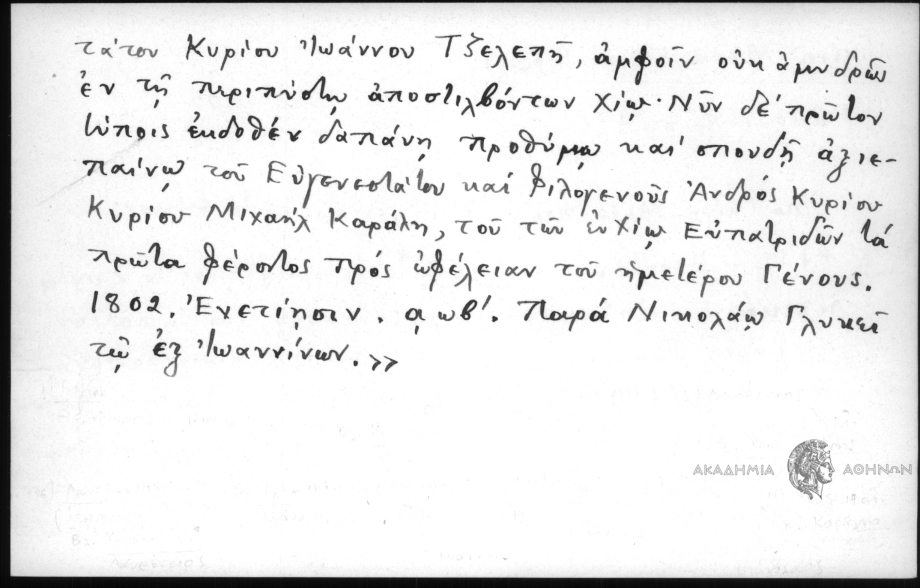 τάτου Κυρίου Ἰωάννου Τζελεπῆ, ἀμφοῖν οὐκ ἀμυδρῶν
ἐν τῇ περιπύστῳ ἀποστιλβόντων Χίῳ· Νῦν δέ πρῶτον
τύποις ἐκδοθέν δαπάνῃ προθύμῳ καί σπουδῇ ἀξιε-
παίνῳ τοῦ Εὐγενεστάτου καί Φιλογενοῦς Ἀνδρός Κυρίου
Κυρίου Μιχαήλ Καράλη, τοῦ τῶν ἐν Χίῳ Εὐπατριδῶν τά
πρῶτα φέροντος πρός ὠφέλειαν τοῦ ἡμετέρου Γένους.
1802. Ἐνετίησιν. αωβ'. Παρά Νικολάῳ Γλυκεῖ
τῷ ἐξ Ἰωαννίνων.»
ΑΚΑΔΗΜΙΑ ΑΘΗΝΩΝ